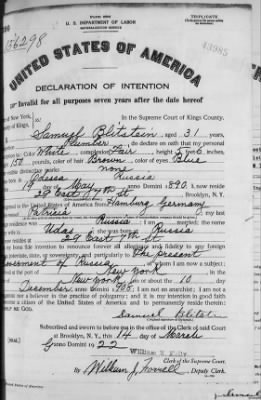 U. S. DEPARTMENT OF LABOR
TRIPLICATE
No. 156298
43985
UNITED STATES OF AMERICA
DECLARATION OF INTENTION
Invalid for all purposes seven years after the date hereof
of New York,
In the Supreme Court of Kings County.
of Kings,
Samuel Blitstein, aged 31 years,
Plumber, do declare on oath that my personal
is: Color White, complexion Fair, height 5 feet inches,
150 pounds, color of hair Brown, color of eyes Blue
visible distinctive marks none
Odessa Russia
day of May, anno Domini 1890; I now reside
29 East 7th St, Brooklyn, N.Y.
the United States of America from Hamburg Germany
Patricia; my last
residence was Russia; I am married;
Udas Russia
29 East 7th St
fide intention to renounce forever all allegiance and fidelity to any foreign
potentate, state, or sovereignty, and particularly to The present
Government of Russia, of whom I am now a subject;
at the port of New York, in the
New York, on or about the 10 day
December, anno Domini; I am not an anarchist; I am not a
nor a believer in the practice of polygamy; and it is my intention in good faith
a citizen of the United States of America and to permanently reside therein:
HELP ME GOD.
Samuel Blitstein
Subscribed and sworn to before me in the office of the Clerk of said Court
at Brooklyn, N.Y., this 14 day of March
[SEAL]
anno Domini 1922
William E. Kelly
Clerk of the Supreme Court.
By William J. Powell, Deputy Clerk.